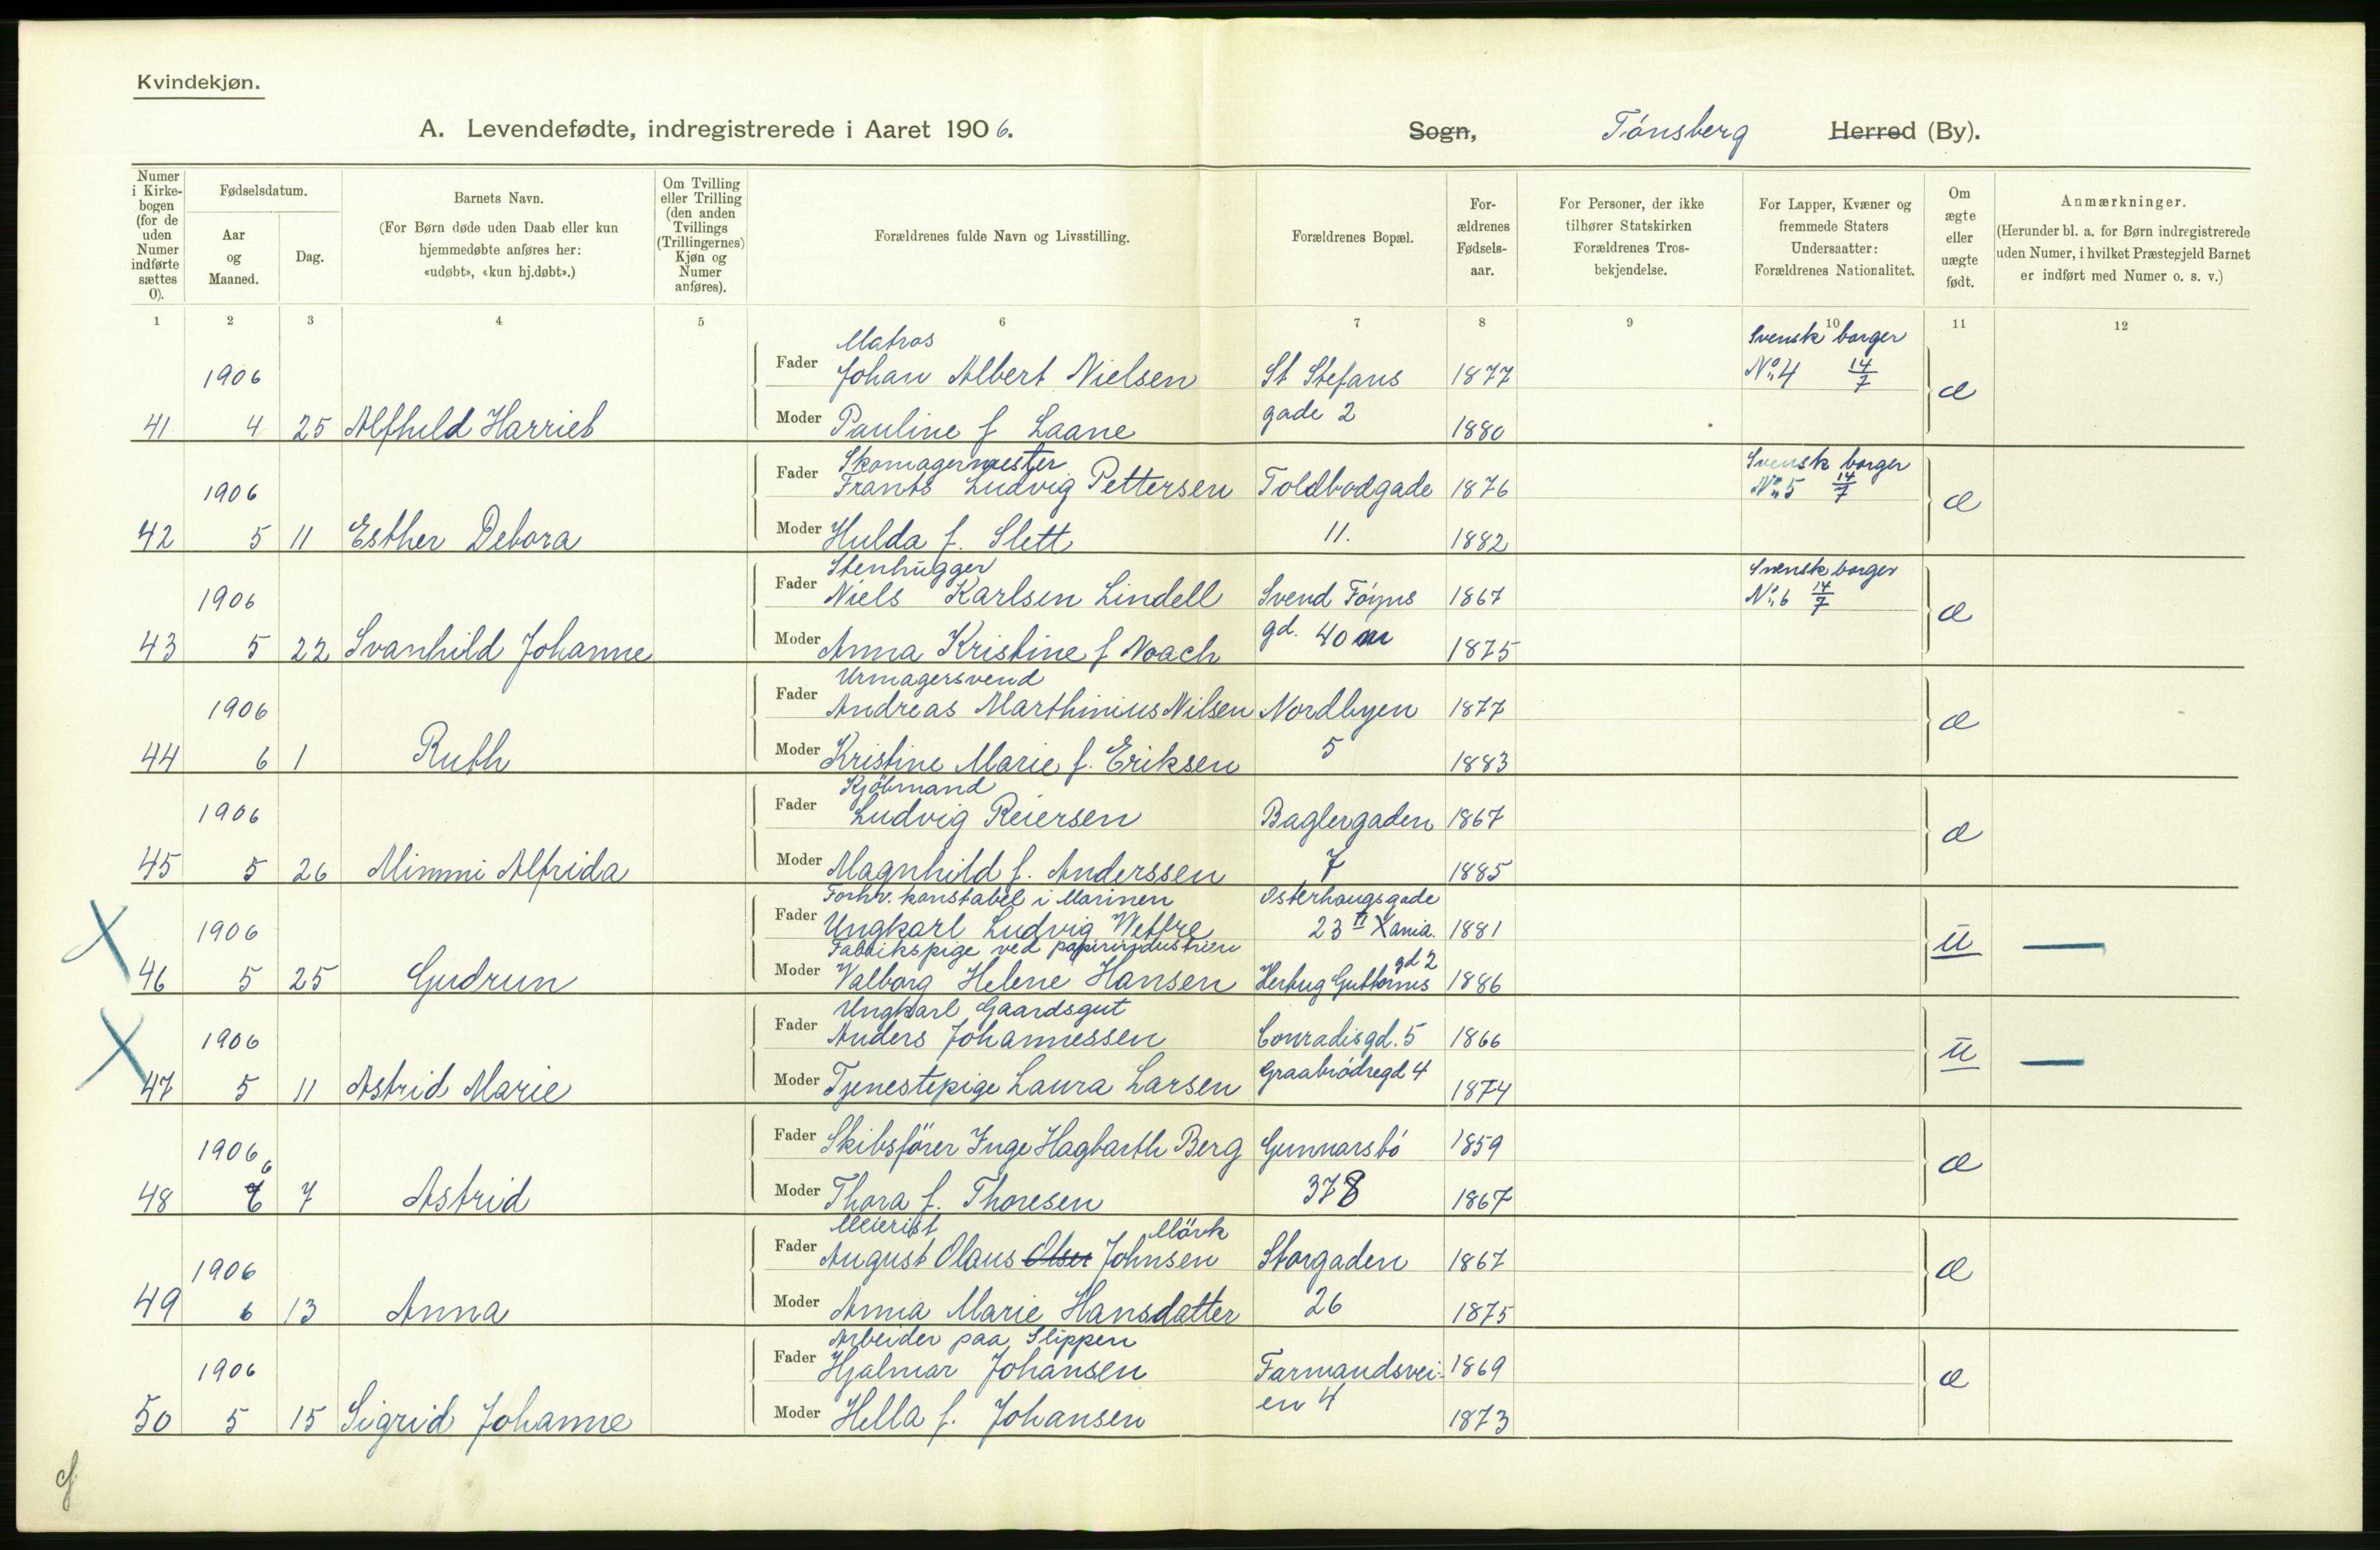 Kvindekjøn.
A. Levendefødte, indregistrerede i Aaret 1906.
Sogn, Tönsberg Herred (By).
Numer i Kirkebogen (for de uden Numer indførte sættes 0).
Fødselsdatum.
Aar og Maaned.
Dag.
Barnets Navn.
(For Børn døde uden Daab eller kun hjemmedøbte anføres her: «udøbt», «kun hj.døbt».)
Om Tvilling eller Trilling (den anden Tvillings (Trillingernes) Kjøn og Numer anføres).
Forældrenes fulde Navn og Livsstilling.
Forældrenes Bopæl.
Forældrenes Fødselsaar.
For Personer, der ikke tilhører Statskirken Forældrenes Trosbekjendelse.
For Lapper, Kvæner og fremmede Staters Undersaatter: Forældrenes Nationalitet.
Om ægte eller uægte født.
Anmærkninger.
(Herunder bl. a. for Børn indregistrerede uden Numer, i hvilket Præstegjeld Barnet er indført med Numer o. s. v.)
1 2 3 4 5 6 7 8 9 10 11 12
Matros Svensk borger
1906 Fader Johan Albert Nielsen St Stefans 1877 No 4 14/7 æ
41 4 25 Alfhild Harriet Moder Pauline f Laane gade 2 1880
Skomagermester Svensk borger
1906 Fader Frants Ludvig Pettersen Toldbodgade 1876 No 5 14/7 æ
42 5 11 Esther Debora Moder Hulda f. Slett 11. 1882
Stenhugger Svensk borger
1906 Fader Niels Karlsen Lindell Svend Föyns 1867 No 6 14/7 æ
43 5 22 Svanhild Johanne Moder Anna Kristine f Noach gd. 40 1875
Urmagersvend
1906 Fader Andreas Marthinius Nilsen Nordbyen 1877 æ
44 6 1 Ruth Moder Kristine Marie f. Eriksen 5 1883
Kjöbmand
1906 Fader Ludvig Reiersen Baglergaden 1867 æ
45 5 26 Mimmi Alfrida Moder Magnhild f. Anderssen 7 1885
Forhv. konstabel i Marinen Osterhaugsgade
1906 Fader Ungkarl Ludvig Wettre 23 II Xania. 1881 u
Fabrikspige ved papirindustrien gd 2
46 5 25 Gudrun Moder Valborg Helene Hansen Hertug Guttorms 1886
Ungkarl Gaardsgut
1906 Fader Anders Johannessen Conradisgd. 5 1866 u
47 5 11 Astrid Marie Moder Tjenestepige Laura Larsen Graabrödregd 4 1874
1906 Fader Skibsförer Inge Hagbarth Berg Gunnarsbö 1859 æ
6
48 7 Astrid Moder Thora f. Thoresen 378 1867
Meierist Mörk
1906 Fader August Olaus Olsen Johnsen Storgaden 1867 æ
49 6 13 Anna Moder Anna Marie Hansdatter 26 1875
Arbeider paa Slippen
1906 Fader Hjalmar Johansen Farmandsvei- 1869 æ
50 5 15 Sigrid Johanne Moder Hella f. Johansen en 4 1873